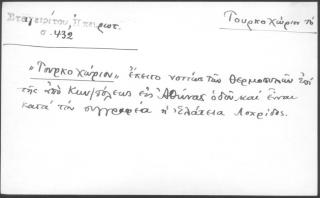 Σταγειρίτου Ἠπειρωτ.
σ. 432
Τοῦρκο Χώριον τό
"Τοῦρκο Χώριον" ἔκειτο νοτίως τῶν Θερμοπυλῶν ἐπί
τῆς ἀπό Κων/πόλεως εἰς Ἀθήνας ὁδοῦ καί εἶναι
κατά τόν συγγραφέα ἡ Ἐλάτεια Λοκρίδος.